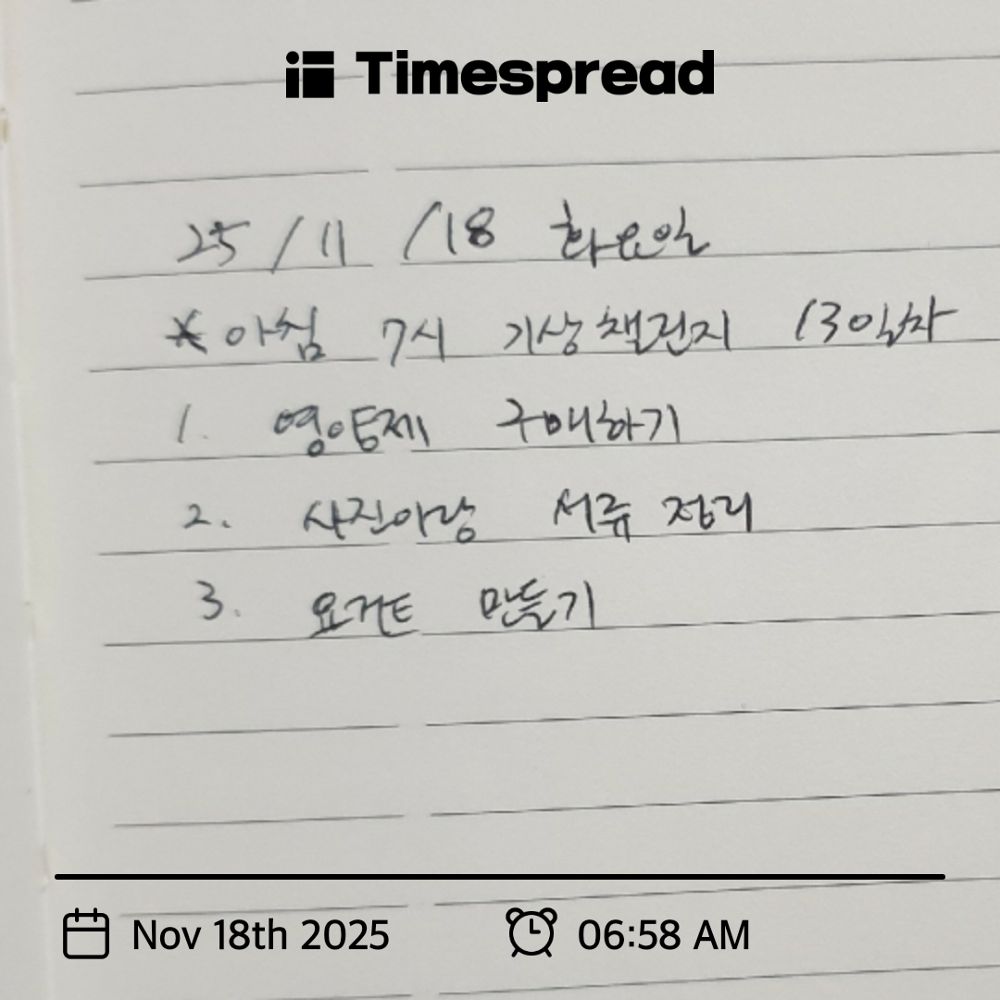 Timespread
25/11/18 화요일
*아침 7시 기상 챌린지 13일차
1. 영양제 구매하기
2. 사진이랑 서류 정리
3. 요거트 만들기
Nov 18th 2025 06:58 AM